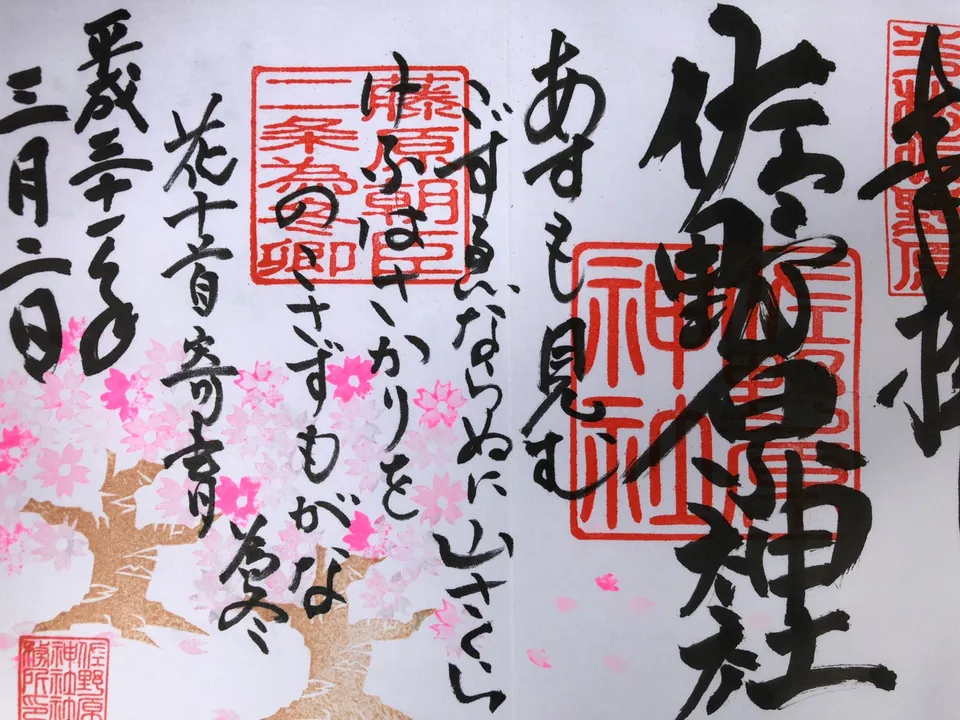 奉拝
佐野原神社
佐野原
神社
あすも見む
こずゑならぬに山さくら
けふはさかりを
のこさずもがな
藤原朝臣
二条為冬卿
花十首寄書
為冬
平成三十一年
三月二日
佐野原
神社社
務所印